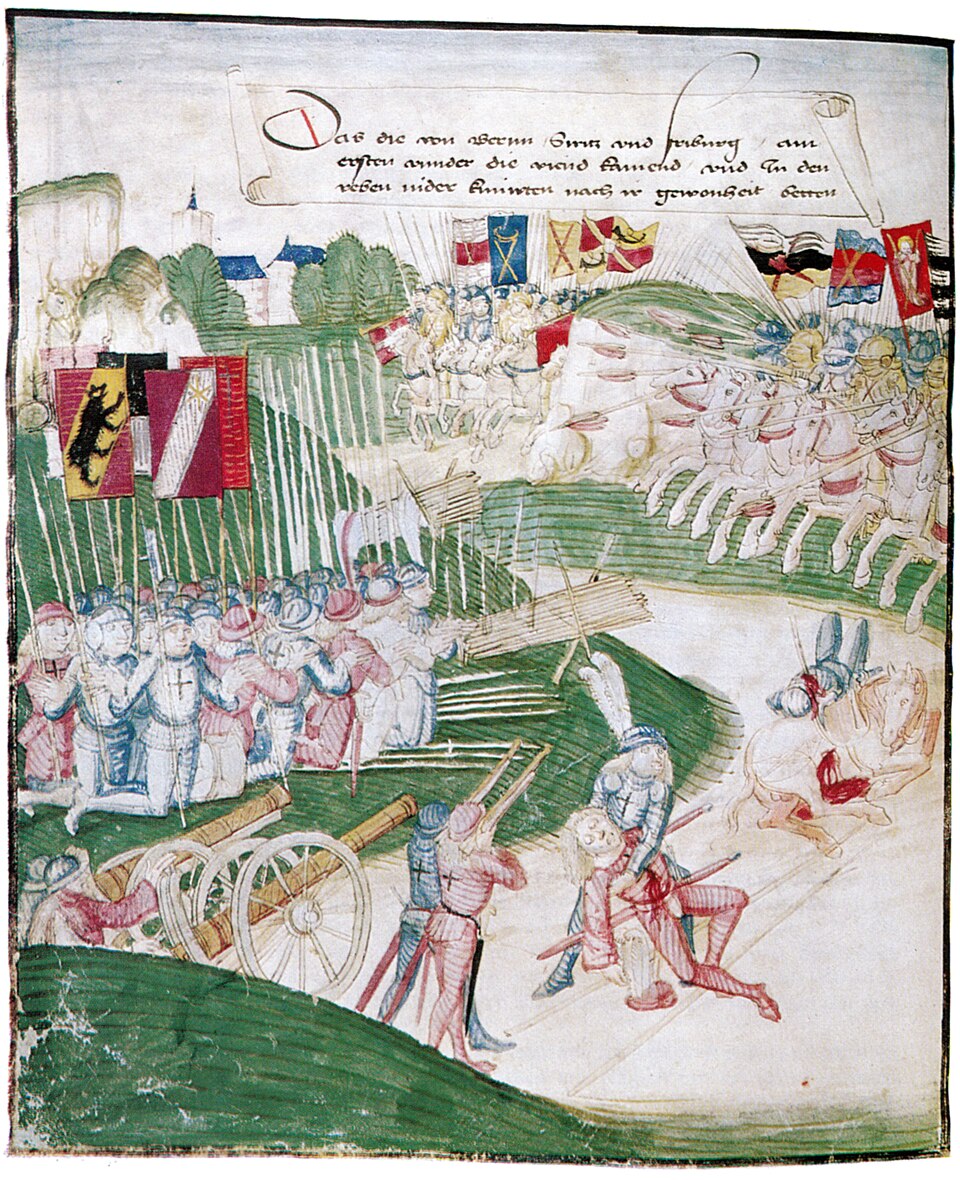 Das die von Bernn Switz vnd friburg / am
ersten wunder die viend kamend / vnd In den
reben nider knüwten nach ir gewonheit betten